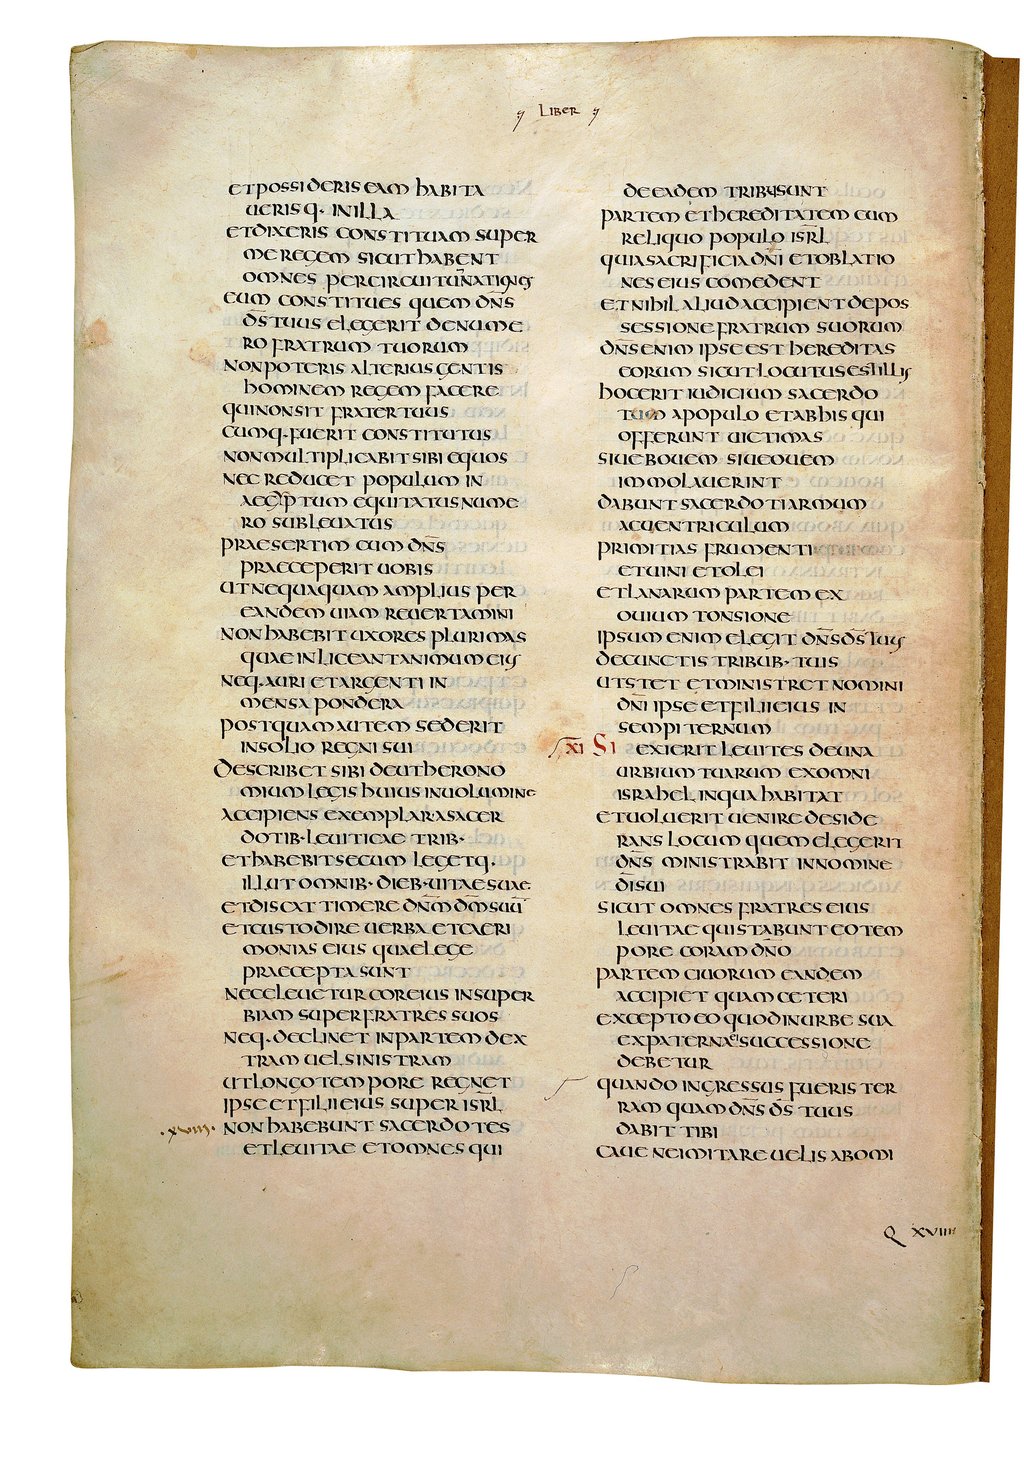 LIBER
ET POSSIDERIS EAM HABITA
UERISQ· IN ILLA
ET DIXERIS CONSTITUAM SUPER
ME REGEM SICUT HABENT
OMNES PER CIRCUITŪ NATIONES
EUM CONSTITUES QUEM DN̄S
DS̄ TUUS ELEGERIT DE NUME
RO FRATRUM TUORUM
NON POTERIS ALTERIUS GENTIS
HOMINEM REGEM FACERE
QUI NON SIT FRATER TUUS
CUMQ· FUERIT CONSTITUTUS
NON MULTIPLICABIT SIBI EQUOS
NEC REDUCET POPULUM IN
AEGYPTUM EQUITATUS NUME
RO SUBLEUATUS
PRAESERTIM CUM DN̄S
PRAECEPERIT UOBIS
UT NEQUAQUAM AMPLIUS PER
EANDEM UIAM REUERTAMINI
NON HABEBIT UXORES PLURIMAS
QUAE INLICEANT ANIMUM EIUS
NEQ· AURI ET ARGENTI IN
MENSA PONDERA
POSTQUAM AUTEM SEDERIT
IN SOLIO REGNI SUI
DESCRIBET SIBI DEUTHERONO
MIUM LEGIS HUIUS IN UOLUMINE
ACCIPIENS EXEMPLAR A SACER
DOTIB· LEUITICAE TRIB·
ET HABEBIT SECUM LEGETQ·
ILLUT OMNIB· DIEB· UITAE SUAE
ET DISCAT TIMERE DN̄M DM̄ SUŪ
ET CUSTODIRE UERBA ET CAERI
MONIAS EIUS QUAE LEGE
PRAECEPTA SUNT
NEC ELEUETUR COR EIUS IN SUPER
BIAM SUPER FRATRES SUOS
NEQ· DECLINET IN PARTEM DEX
TRAM UEL SINISTRAM
UT LONGO TEMPORE REGNET
IPSE ET FILII EIUS SUPER ISRL̄
·XVIII· NON HABEBUNT SACERDOTES
ET LEUITAE ET OMNES QUI
DE EADEM TRIBU SUNT
PARTEM ET HEREDITATEM CUM
RELIQUO POPULO ISRL̄
QUIA SACRIFICIA DN̄I ET OBLATIO
NES EIUS COMEDENT
ET NIHIL ALIUD ACCIPIENT DE POS
SESSIONE FRATRUM SUORUM
DN̄S ENIM IPSE EST HEREDITAS
EORUM SICUT LOCUTUS EST ILLIS
HOC ERIT IUDICIUM SACERDO
TUM A POPULO ET AB HIS QUI
OFFERUNT UICTIMAS
SIUE BOUEM SIUE OUEM
IMMOLAUERINT
DABUNT SACERDOTI ARMUM
AC UENTRICULUM
PRIMITIAS FRUMENTI
ET UINI ET OLEI
ET LANARUM PARTEM EX
OUIUM TONSIONE
IPSUM ENIM ELEGIT DN̄S DS̄ TUUS
DE CUNCTIS TRIBUB· TUIS
UT STET ET MINISTRET NOMINI
DN̄I IPSE ET FILII EIUS IN
SEMPITERNUM
XI SI EXIERIT LEUITES DE UNA
URBIUM TUARUM EX OMNI
ISRAHEL IN QUA HABITAT
ET UOLUERIT UENIRE DESIDE
RANS LOCUM QUEM ELEGERIT
DN̄S MINISTRABIT IN NOMINE
DĪ SUI
SICUT OMNES FRATRES EIUS
LEUITAE QUI STABUNT EO TEM
PORE CORAM DN̄O
PARTEM CIUORUM EANDEM
ACCIPIET QUAM CETERI
EXCEPTO EO QUOD IN URBE SUA
EX PATERNA EI SUCCESSIONE
DEBETUR
QUANDO INGRESSUS FUERIS TER
RAM QUAM DN̄S DS̄ TUUS
DABIT TIBI
CAUE NE IMITARE UELIS ABOMI
Q XVIIII